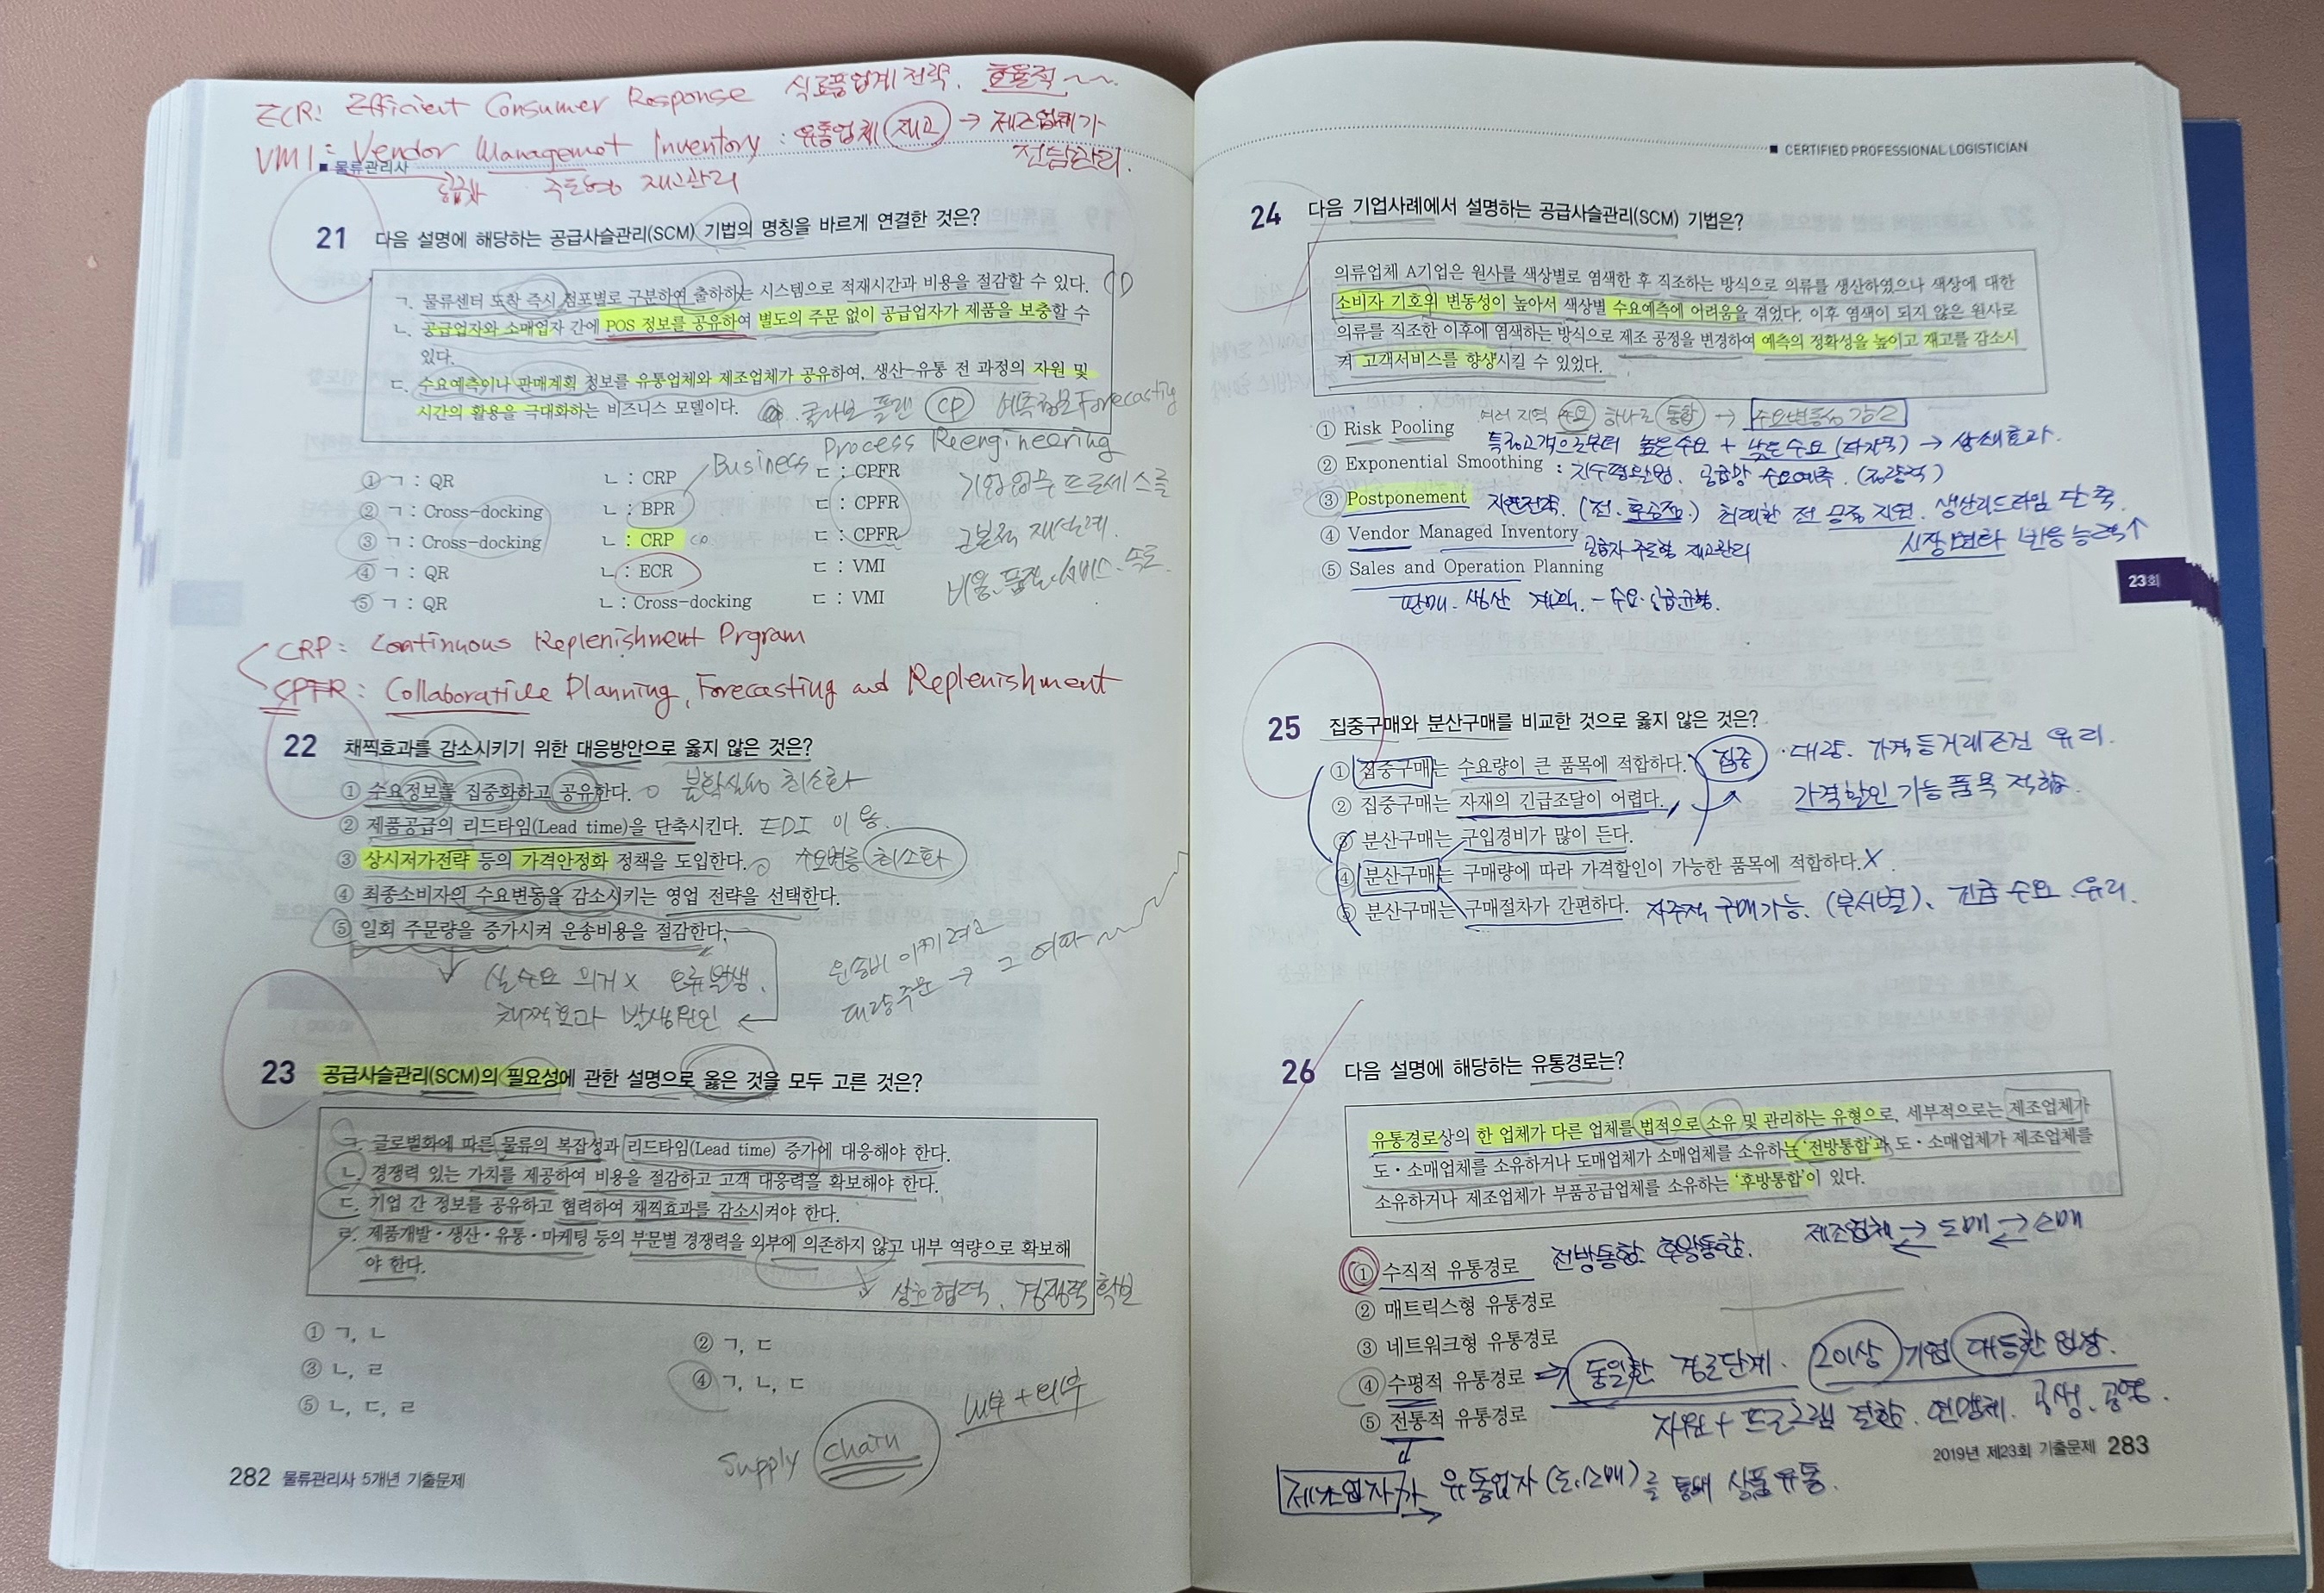 ECR: Efficient Consumer Response 식료품업계 전략. 효율적
VMI: Vendor Managemot Inventory : 유통업체 재고 → 제조업체가
전담관리.
■ 물류관리사
공급자 주도형 재고관리
21 다음 설명에 해당하는 공급사슬관리(SCM) 기법의 명칭을 바르게 연결한 것은?
ㄱ. 물류센터 도착 즉시 점포별로 구분하여 출하하는 시스템으로 적재시간과 비용을 절감할 수 있다. CD
ㄴ. 공급업자와 소매업자 간에 POS 정보를 공유하여 별도의 주문 없이 공급업자가 제품을 보충할 수
있다.
ㄷ. 수요예측이나 판매계획 정보를 유통업체와 제조업체가 공유하여, 생산-유통 전 과정의 자원 및
시간의 활용을 극대화하는 비즈니스 모델이다. 콜라보 플랜 CP 예측정보 Forecasting
Business Process Reengineering
① ㄱ : QR ㄴ : CRP ㄷ : CPFR
② ㄱ : Cross-docking ㄴ : BPR ㄷ : CPFR
③ ㄱ : Cross-docking ㄴ : CRP ㄷ : CPFR
④ ㄱ : QR ㄴ : ECR ㄷ : VMI
⑤ ㄱ : QR ㄴ : Cross-docking ㄷ : VMI
기업업무 프로세스를
근본적 재설계.
비용.품질.서비스.속도
CRP: Continuous Replenishment Prgram
CPFR: Collaborative Planning, Forecasting and Replenishment
22 채찍효과를 감소시키기 위한 대응방안으로 옳지 않은 것은?
① 수요정보를 집중화하고 공유한다. ○ 불확실성 최소화
② 제품공급의 리드타임(Lead time)을 단축시킨다. EDI 이용.
③ 상시저가전략 등의 가격안정화 정책을 도입한다. ○ 수요변동 최소화
④ 최종소비자의 수요변동을 감소시키는 영업 전략을 선택한다.
⑤ 일회 주문량을 증가시켜 운송비용을 절감한다.
실수요 의거 X 오류발생.
채찍효과 발생원인
운송비 아끼려고
대량주문 → 그 여파
23 공급사슬관리(SCM)의 필요성에 관한 설명으로 옳은 것을 모두 고른 것은?
ㄱ. 글로벌화에 따른 물류의 복잡성과 리드타임(Lead time) 증가에 대응해야 한다.
ㄴ. 경쟁력 있는 가치를 제공하여 비용을 절감하고 고객 대응력을 확보해야 한다.
ㄷ. 기업 간 정보를 공유하고 협력하여 채찍효과를 감소시켜야 한다.
ㄹ. 제품개발・생산・유통・마케팅 등의 부문별 경쟁력을 외부에 의존하지 않고 내부 역량으로 확보해
야 한다.
상호협력, 경쟁력 확보
① ㄱ, ㄴ ② ㄱ, ㄷ
③ ㄴ, ㄹ ④ ㄱ, ㄴ, ㄷ
⑤ ㄴ, ㄷ, ㄹ
내부 + 외부
Supply chain
282 물류관리사 5개년 기출문제
■ CERTIFIED PROFESSIONAL LOGISTICIAN
24 다음 기업사례에서 설명하는 공급사슬관리(SCM) 기법은?
의류업체 A기업은 원사를 색상별로 염색한 후 직조하는 방식으로 의류를 생산하였으나 색상에 대한
소비자 기호의 변동성이 높아서 색상별 수요예측에 어려움을 겪었다. 이후 염색이 되지 않은 원사로
의류를 직조한 이후에 염색하는 방식으로 제조 공정을 변경하여 예측의 정확성을 높이고 재고를 감소시
켜 고객서비스를 향상시킬 수 있었다.
① Risk Pooling 여러 지역 수요 하나로 통합 → 수요변동성 감소
특정고객으로부터 높은수요 + 낮은수요 (타지역) → 상쇄효과.
② Exponential Smoothing : 지수평활법. 공급망 수요예측. (정량적)
③ Postponement 지연전략. (전.후공정.) 최대한 전 공정 지연. 생산리드타임 단축.
④ Vendor Managed Inventory 공급자 주도형 재고관리 시장변화 반응능력↑
⑤ Sales and Operation Planning
판매. 생산 계획. - 수요.공급균형.
23회
25 집중구매와 분산구매를 비교한 것으로 옳지 않은 것은?
① 집중구매는 수요량이 큰 품목에 적합하다. 집중 · 대량. 가격등거래조건 유리.
② 집중구매는 자재의 긴급조달이 어렵다. 가격할인 가능품목 적합.
③ 분산구매는 구입경비가 많이 든다.
④ 분산구매는 구매량에 따라 가격할인이 가능한 품목에 적합하다. X
⑤ 분산구매는 구매절차가 간편하다. 자주적 구매가능. (부서별). 긴급 수요 유리.
26 다음 설명에 해당하는 유통경로는?
유통경로상의 한 업체가 다른 업체를 법적으로 소유 및 관리하는 유형으로, 세부적으로는 제조업체가
도・소매업체를 소유하거나 도매업체가 소매업체를 소유하는 '전방통합'과 도・소매업체가 제조업체를
소유하거나 제조업체가 부품공급업체를 소유하는 '후방통합'이 있다.
제조업체 → 도매 → 소매
① 수직적 유통경로 전방통합. 후방통합.
② 매트릭스형 유통경로
③ 네트워크형 유통경로
④ 수평적 유통경로 ⇒ 동일한 경로단계. 2이상 기업 대등한 입장.
⑤ 전통적 유통경로 자원 + 프로그램 결합. 연맹체. 공생. 공영.
2019년 제23회 기출문제 283
제조업자가 → 유통업자 (도.소매)를 통해 상품유통.